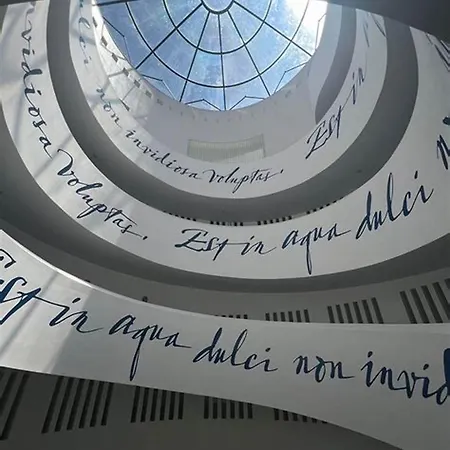 non invidiosa voluptas.
Est in
invidiosa voluptas. Est in aqua dulci n
Est in aqua dulci non invid